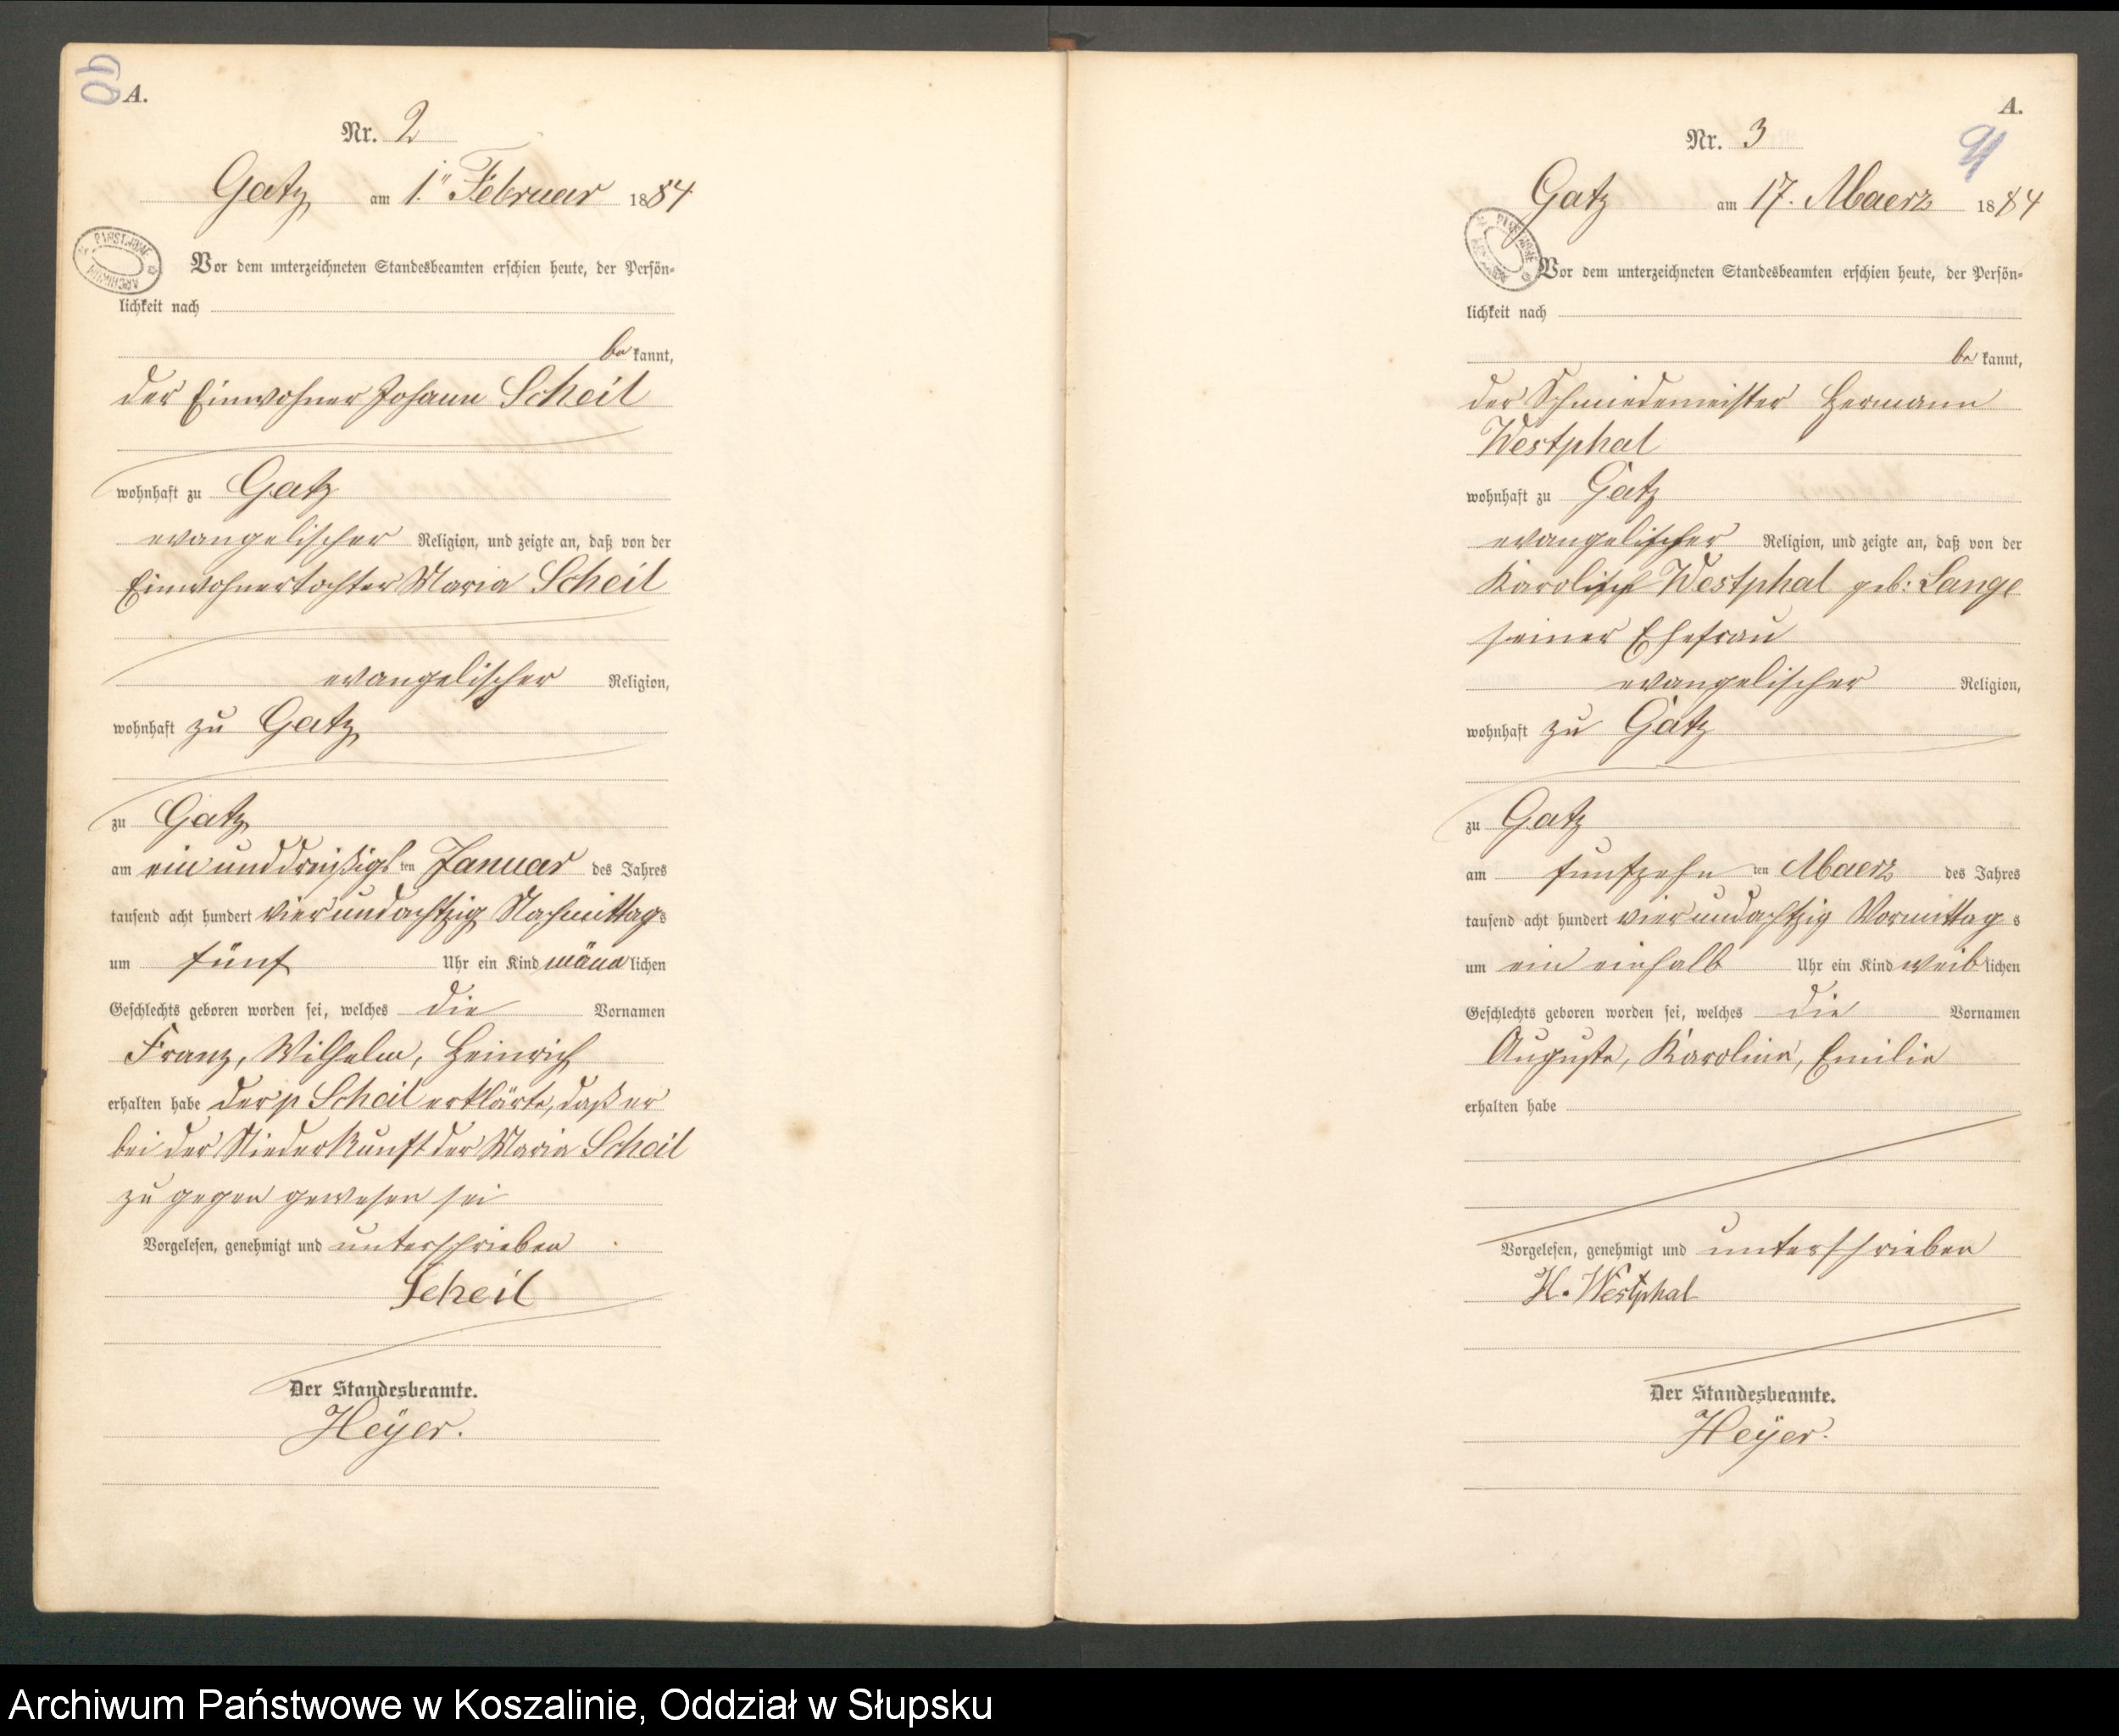 90
A.
Nr. 2
Gatz am 1ten Februar 1884
Vor dem unterzeichneten Standesbeamten erschien heute, der Persön-
lichkeit nach
be kannt,
der Einwohner Johann Scheil
wohnhaft zu Gatz
evangelischer Religion, und zeigte an, daß von der
Einwohnertochter Maria Scheil
evangelischer Religion,
wohnhaft zu Gatz
zu Gatz
am ein und dreißigsten Januar des Jahres
tausend acht hundert vier und achtzig Nachmittags
um fünf Uhr ein Kind männlichen
Geschlechts geboren worden sei, welches die Vornamen
Franz, Wilhelm, Heinrich
erhalten habe der p Scheil erklärte, daß er
bei der Niederkunft der Maria Scheil
zu gegen gewesen sei
Vorgelesen, genehmigt und unterschrieben
Scheil
Der Standesbeamte.
Heÿer.
A.
91
Nr. 3
Gatz am 17. Maerz 1884
Vor dem unterzeichneten Standesbeamten erschien heute, der Persön-
lichkeit nach
be kannt,
der Schmiedemeister Hermann
Westphal
wohnhaft zu Gatz
evangelischer Religion, und zeigte an, daß von der
Westphal geb: Lange
seiner Ehefrau
evangelischer Religion,
wohnhaft zu Gatz
zu Gatz
am fünfzehn ten Maerz des Jahres
tausend acht hundert vier und achtzig Vormittag s
um ein einhalb Uhr ein Kind weiblichen
Geschlechts geboren worden sei, welches die Vornamen
Auguste, Karoline, Emilie
erhalten habe
Vorgelesen, genehmigt und unterschrieben
H. Westphal
Der Standesbeamte.
Heÿer.
Archiwum Państwowe w Koszalinie, Oddział w Słupsku